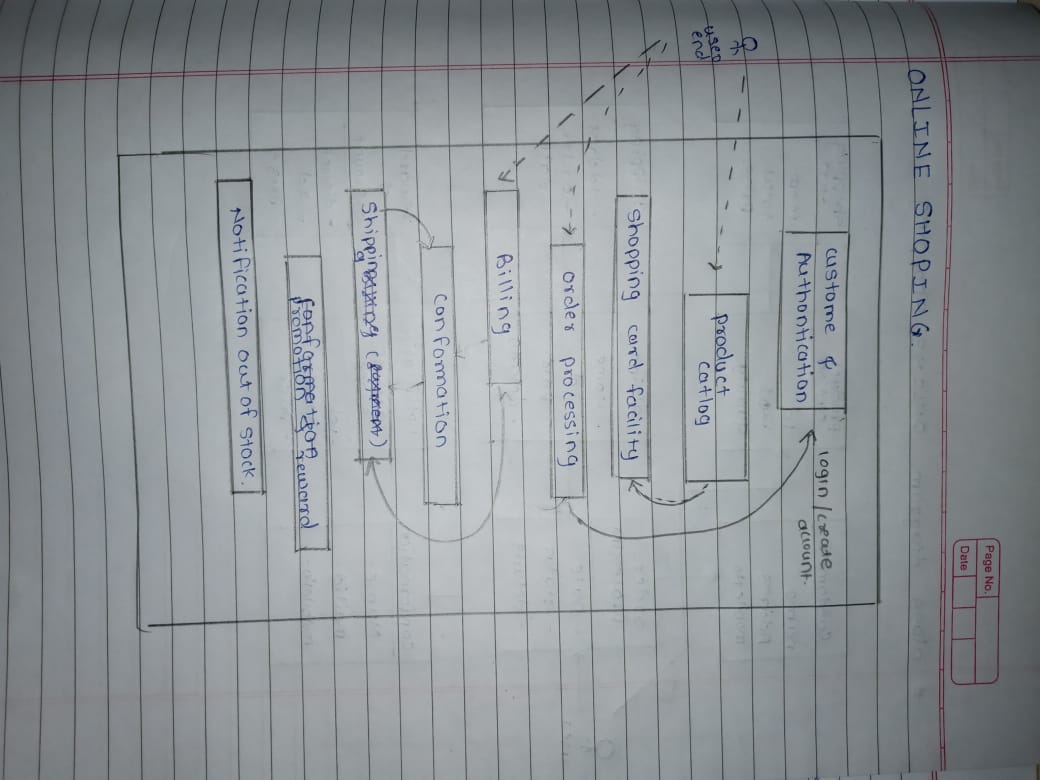 Page No.
Date
ONLINE SHOPING.
user
end
custome &
Authontication
login/create
account.
product
catlog
Shopping card facility
order processing
Billing
Conformation
Shipping
promotion & reward
Notification out of stock.